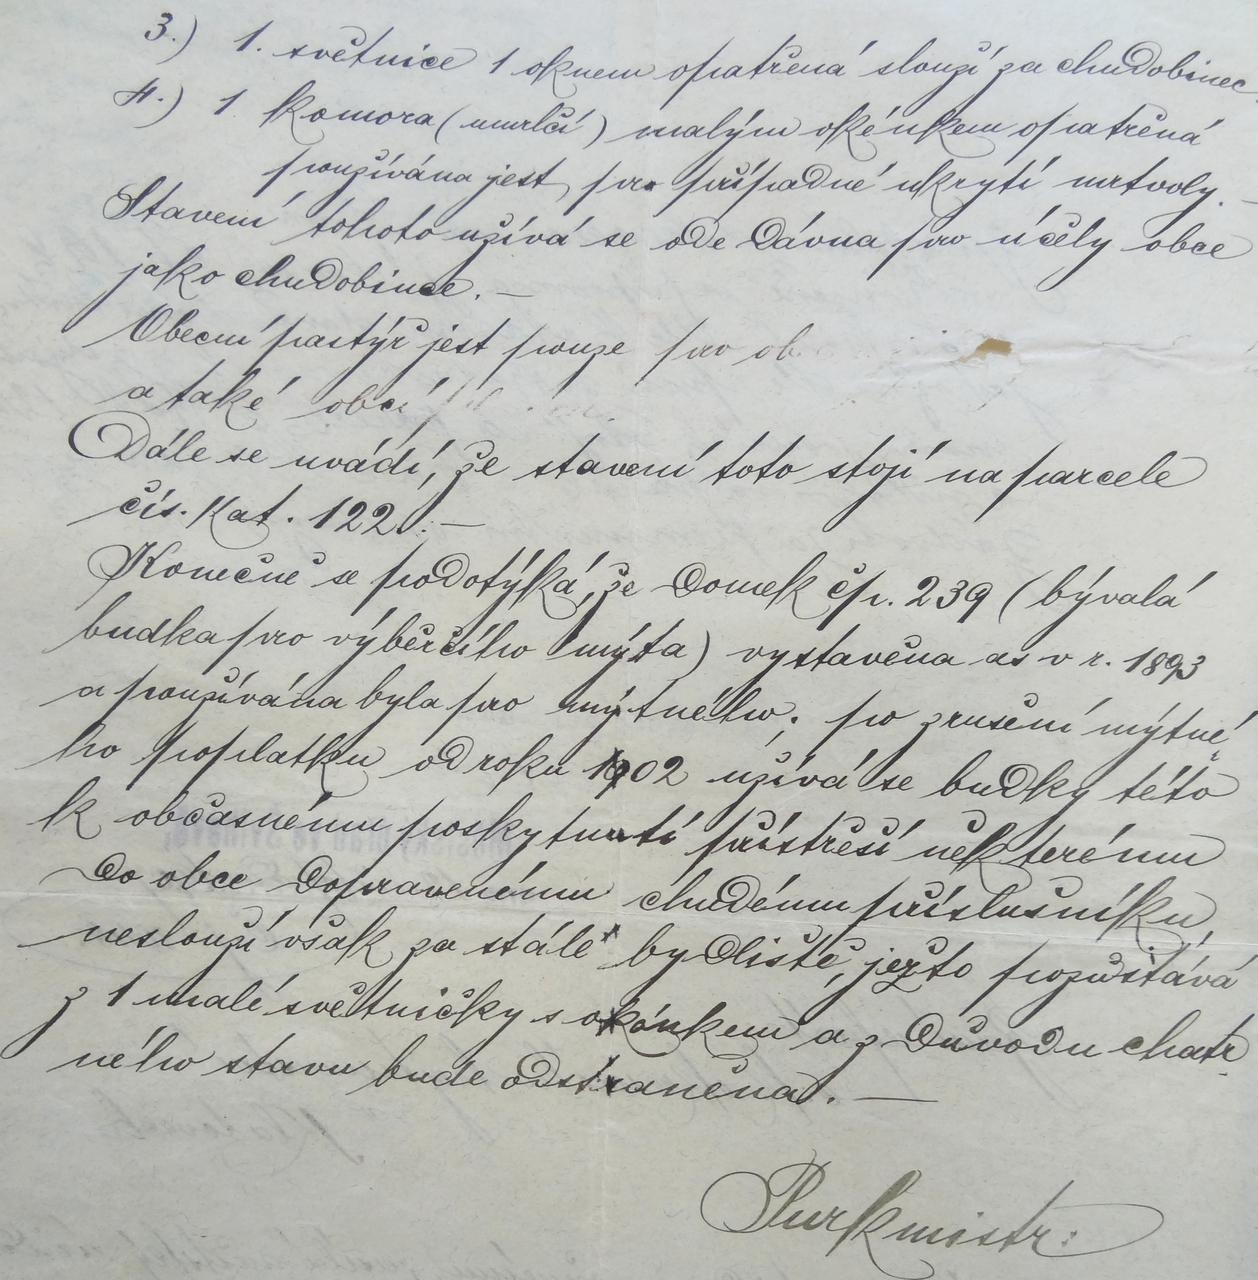 3.) 1. světnice 1 oknem opatřená slouží za chudobinec
4.) 1 komora (umrlčí) malým okénkem opatřená
používána jest pro případné ukrytí mrtvoly. —
Stavení tohoto užívá se ode dávna pro účely obce
jako chudobince. —
Obecní pastýř jest pouze pro
a také
Dále se uvádí, že stavení toto stojí na parcele
čís. kat. 122. —
Konečně se podotýká, že domek čp. 239 (bývalá
budka pro výběrčího mýta) vystavěna as v r. 1893
a používána byla pro mýtného; po zrušení mýtné
ho poplatku od roku 1902 užívá se budky této
k občasnému poskytnutí přístřeší některému
do obce dopravenému chudému příslušníku,
neslouží však za stálé bydliště, ježto pozůstává
z 1 malé světničky s okénkem a z důvodu chatr
ného stavu bude odstraněna. —
Purkmistr: